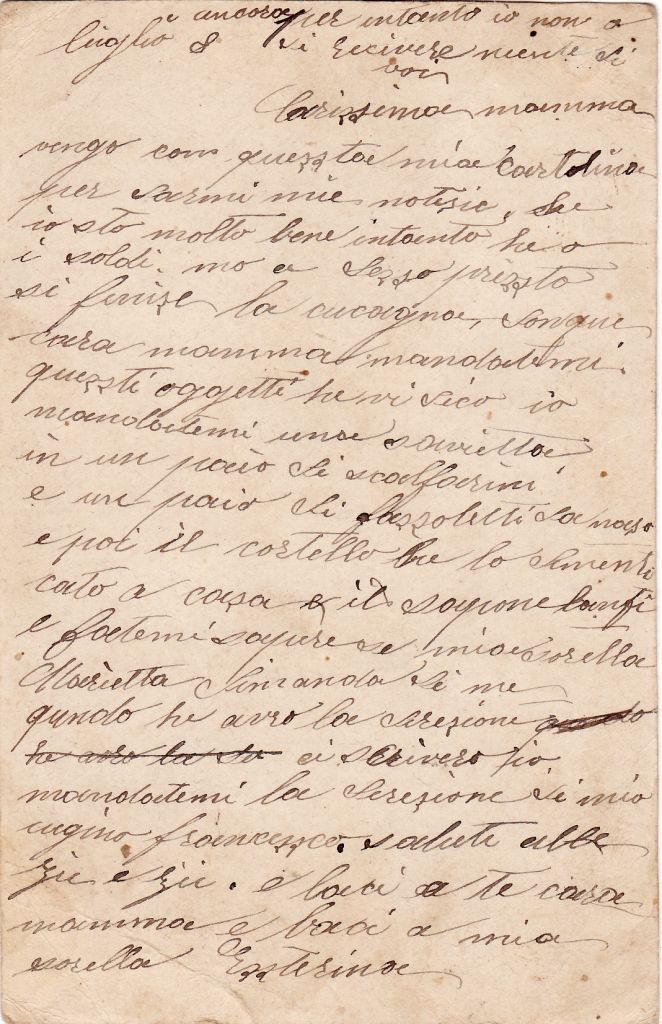 e ancora per intanto io non o
luglio 8 di ricivere niente di
voi
Carissima mamma
vengo con questa mia cartolina
per darmi mie notisie, che
io sto molto bene intanto he o
i soldi. mo a desso prissto
si finise la cucagna, donque
cara mamma mandatemi.
questi oggetti he vi dico io
mandatemi una savietta
in un paio di scalfarini
e un paio di fassoletti da naso
e poi il cortello he lo dimenti
cato a casa e il sapone banfi
e fatemi sapere se mia sorella
Marietta dimanda di me
qundo he avro la diresione
he avro la di ci scrivero io
mandatemi la diresione di mio
cugino francessco. saluti alle
zie e zii. e baci a te cara
mamma e baci a mia
sorella Essterina